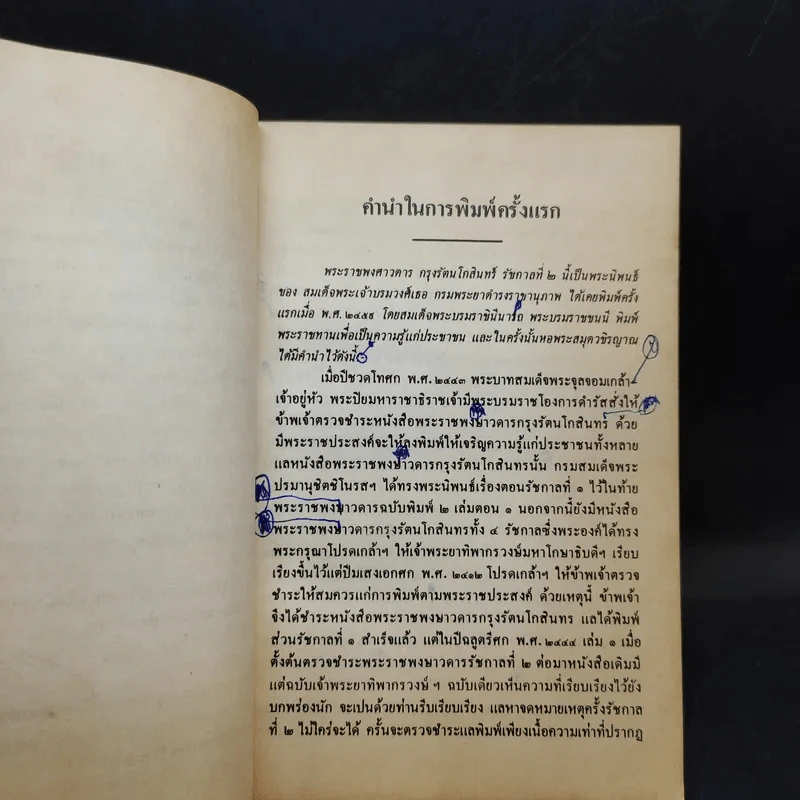 คำนำในการพิมพ์ครั้งแรก
พระราชพงศาวดาร กรุงรัตนโกสินทร์ รัชกาลที่ ๒ นี้เป็นพระนิพนธ์
ของ สมเด็จพระเจ้าบรมวงศ์เธอ กรมพระยาดำรงราชานุภาพ ได้เคยพิมพ์ครั้ง
แรกเมื่อ พ.ศ. ๒๔๕๙ โดยสมเด็จพระบรมราชินีนารถ พระบรมราชชนนี พิมพ์
พระราชทานเพื่อเป็นความรู้แก่ประชาชน และในครั้งนั้นหอพระสมุดวชิรญาณ
ได้มีคำนำไว้ดังนี้
เมื่อปีชวดโทศก พ.ศ. ๒๔๔๓ พระบาทสมเด็จพระจุลจอมเกล้า
เจ้าอยู่หัว พระปิยมหาราชาธิราชเจ้ามีพระบรมราชโองการดำรัสสั่งให้
ข้าพเจ้าตรวจชำระหนังสือพระราชพงษาวดารกรุงรัตนโกสินทร์ ด้วย
มีพระราชประสงค์จะให้ลงพิมพ์ให้เจริญความรู้แก่ประชาชนทั้งหลาย
แลหนังสือพระราชพงษาวดารกรุงรัตนโกสินทรนั้น กรมสมเด็จพระ
ปรมานุชิตชิโนรสฯ ได้ทรงพระนิพนธ์เรื่องตอนรัชกาลที่ ๑ ไว้ในท้าย
พระราชพงษาวดารฉบับพิมพ์ ๒ เล่มตอน ๑ นอกจากนี้ยังมีหนังสือ
พระราชพงษาวดารกรุงรัตนโกสินทรทั้ง ๔ รัชกาลซึ่งพระองค์ได้ทรง
พระกรุณาโปรดเกล้าฯ ให้เจ้าพระยาทิพากรวงษ์มหาโกษาธิบดีฯ เรียบ
เรียงขึ้นไว้แต่ปีมเสงเอกศก พ.ศ. ๒๔๑๒ โปรดเกล้าฯ ให้ข้าพเจ้าตรวจ
ชำระให้สมควรแก่การพิมพ์ตามพระราชประสงค์ ด้วยเหตุนี้ ข้าพเจ้า
จึงได้ชำระหนังสือพระราชพงษาวดารกรุงรัตนโกสินทร แลได้พิมพ์
ส่วนรัชกาลที่ ๑ สำเร็จแล้ว แต่ในปีฉลูตรีศก พ.ศ. ๒๔๔๔ เล่ม ๑ เมื่อ
ตั้งต้นตรวจชำระพระราชพงษาวดารรัชกาลที่ ๒ ต่อมาหนังสือเดิมมี
แต่ฉบับเจ้าพระยาทิพากรวงษ์ ฯ ฉบับเดียวเห็นความที่เรียบเรียงไว้ยัง
บกพร่องนัก จะเปนด้วยท่านรีบเรียบเรียง แลหาจดหมายเหตุครั้งรัชกาล
ที่ ๒ ไม่ใคร่จะได้ ครั้นจะตรวจชำระแลพิมพ์เพียงเนื้อความเท่าที่ปรากฏ